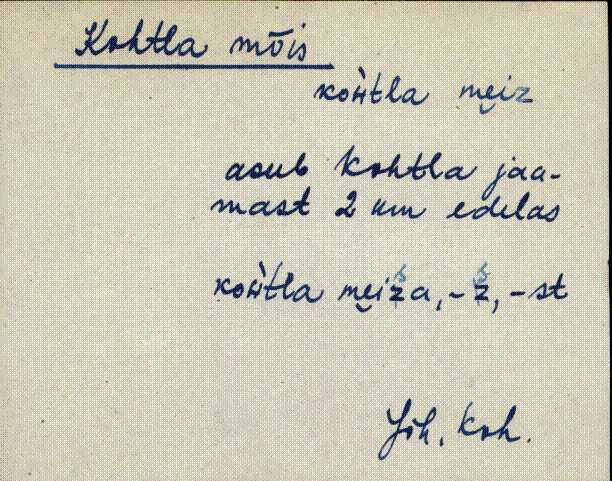 Kohtla mõis
koh̀tla mẹiz
asub Kohtla jaa-
mast 2 km edelas
koh̀tla mẹiza, -z, -st
Jõh, Koh.